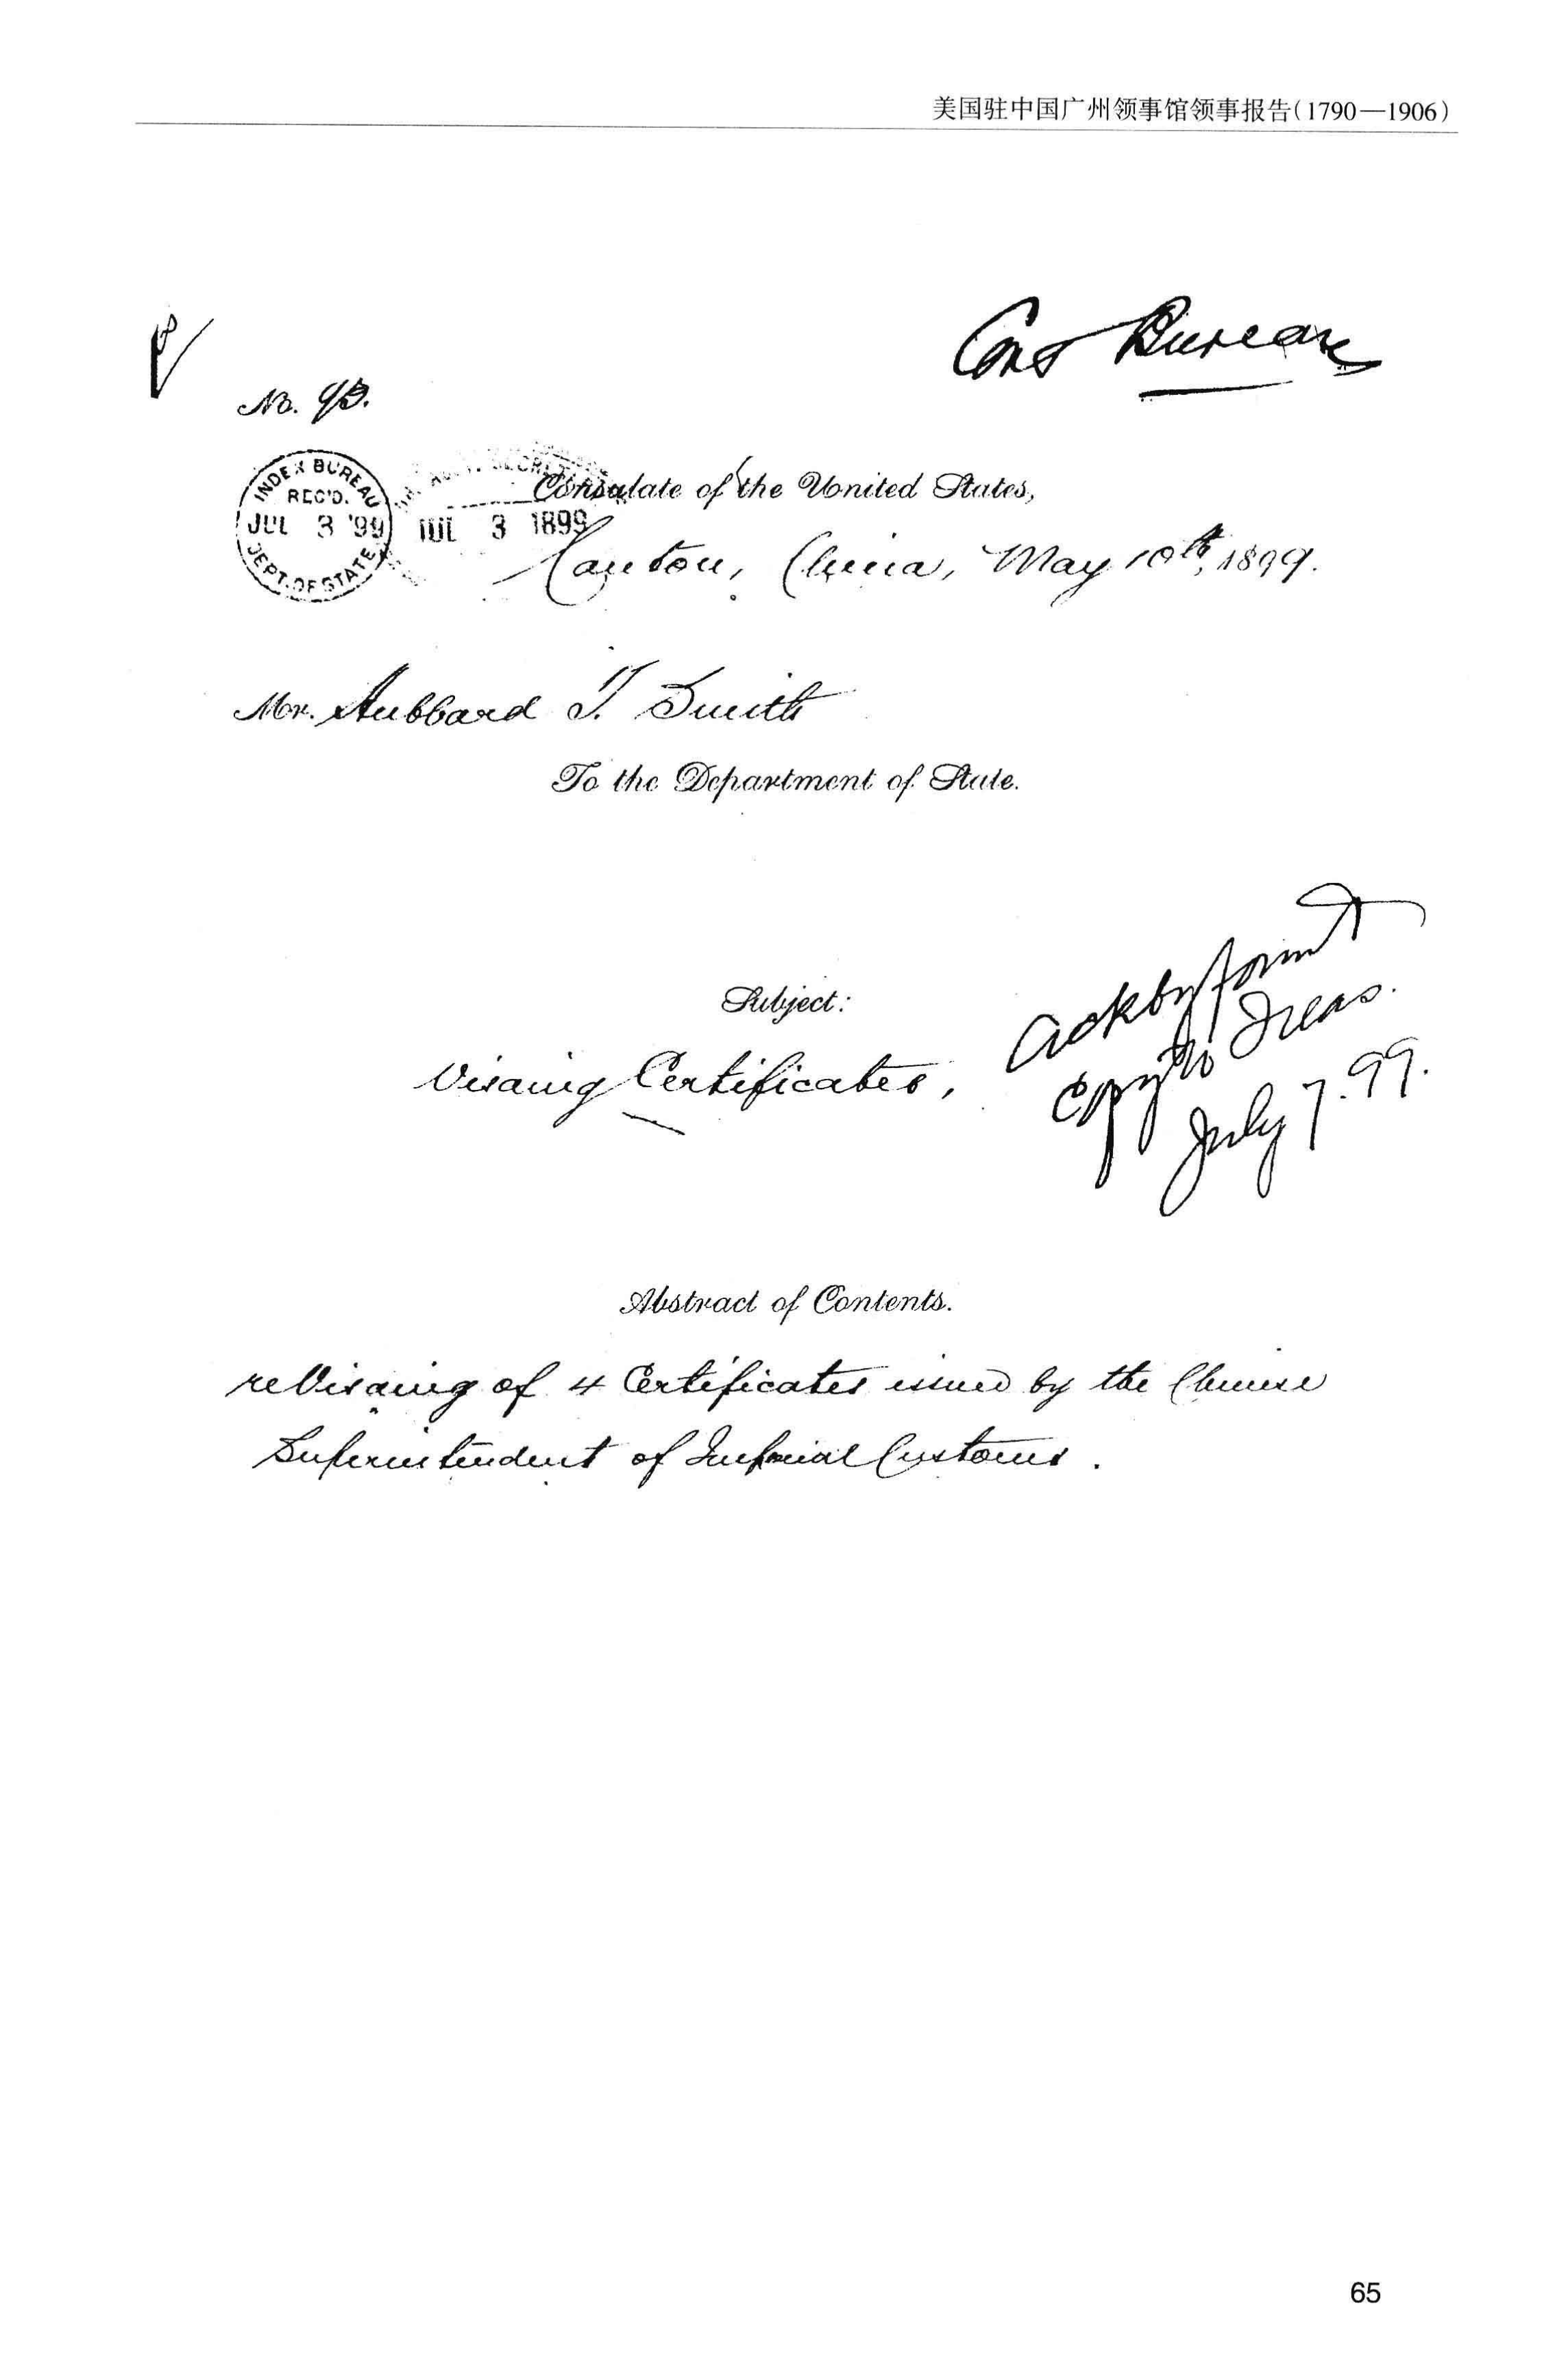 美国驻中国广州领事馆领事报告(1790—1906)
Cons Bureau
No. 93.
INDEX BUREAU
REC'D.
JUL 3 '99
DEPT. OF STATE
JUL 3 1899
Consulate of the United States,
Canton, China, May 10th, 1899.
Mr. Hubbard T. Smith
To the Department of State.
Subject:
Visaing Certificates,
Ack by form
Copy to Treas.
July 7. 99.
Abstract of Contents.
re Visaing of 4 Certificates issued by the Chinese
Superintendent of Imperial Customs.
65